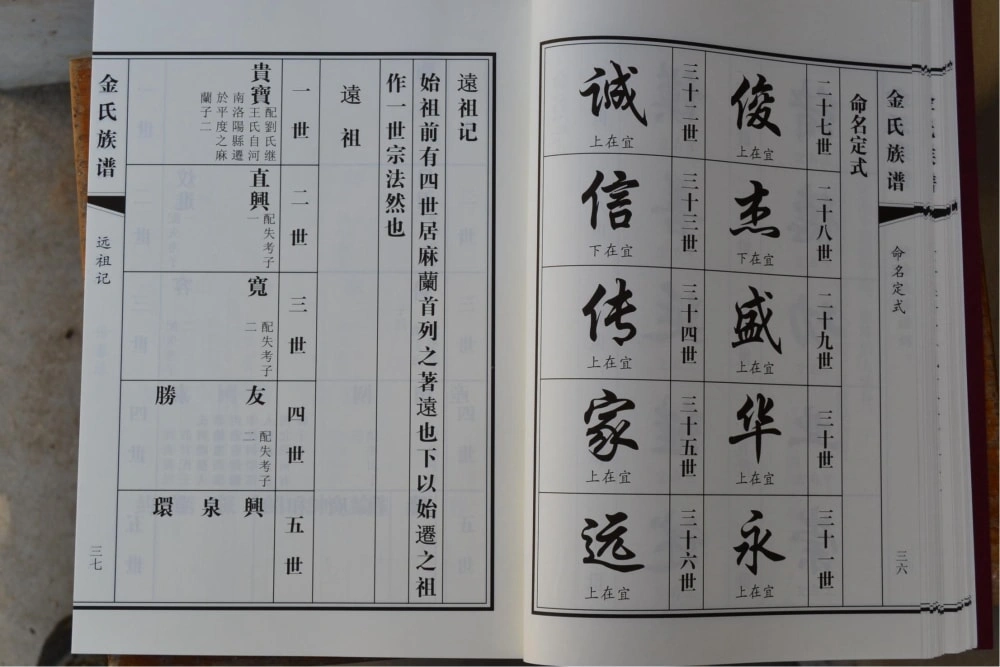 金氏族谱
命名定式
三六
命名定式
二十七世
俊
宜在上
二十八世
杰
宜在下
二十九世
盛
宜在上
三十世
华
宜在上
三十一世
永
宜在上
三十二世
诚
宜在上
三十三世
信
宜在下
三十四世
传
宜在上
三十五世
家
宜在上
三十六世
远
宜在上
遠祖记
始祖前有四世居麻蘭首列之著遠也下以始遷之祖
作一世宗法然也
遠祖
一世
貴寶
配劉氏继
王氏自河
南洛陽縣遷
於平度之麻
蘭子二
二世
直興
配失考子
一
三世
寬
配失考子
二
四世
友
配失考子
二
勝
五世
興
泉
環
金氏族谱
远祖记
三七